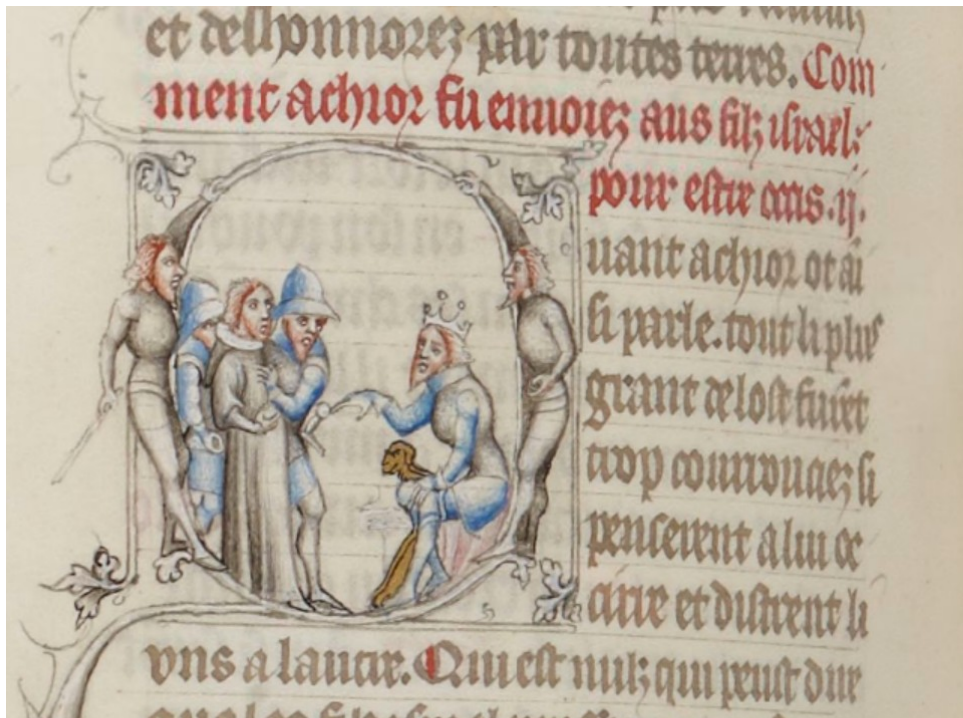 et deshonnorez par toutes terres. Com
ment achior fu enuoiez aus filz israel
pour estre occis .ij.
uant achior ot ai
si parle. tout li plus
grant de lost furent
trop courrouciez si
penserent a lui oc
cirre et distrent li
vns a lautre. Qui est nulz qui peust dire